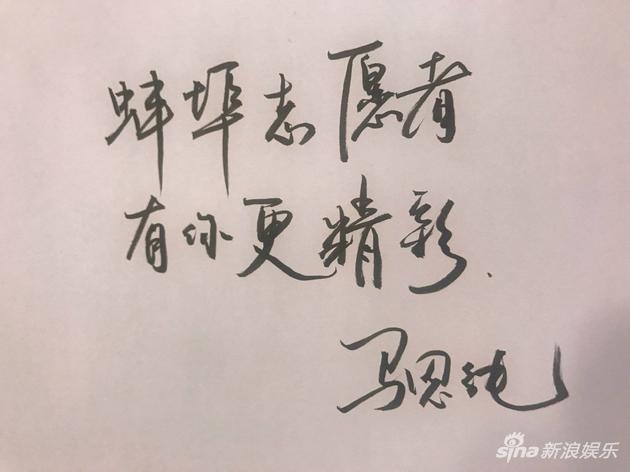 蚌埠志愿者
有你更精彩.
马思纯
sina新浪娱乐